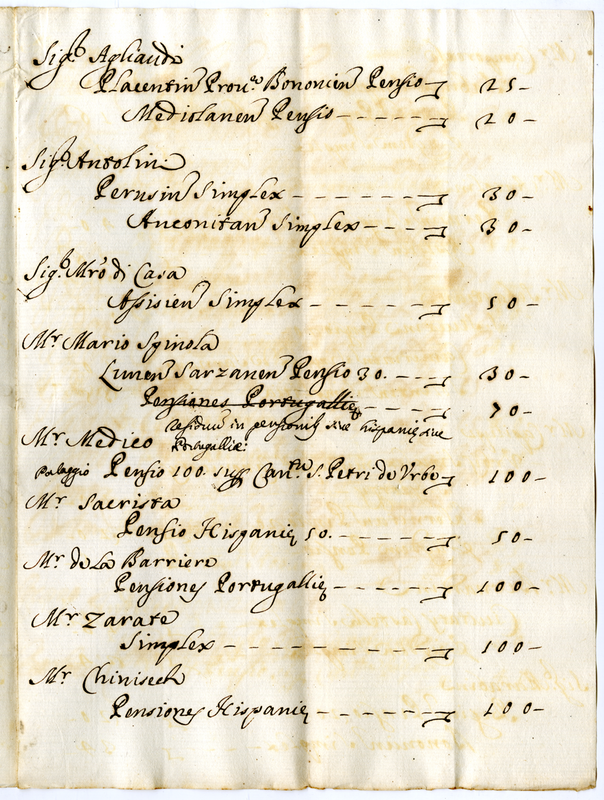 Sig.r Agliaudi
Placentin Prou.ae Bononien Pensio 25-
Mediolanen Pensio - - - - - 20-
Sig.r Antolini
Perusin Simplex - - - - - - 30-
Anconitan Simplex - - - - 30-
Sig.r Mro di Casa
Assisien Simplex - - - - - - 50-
Mr Mario Spinola
Lunen Sarzanen Pensio 30. - - - 30-
Pensiones Portugallię - - - - 70-
residuu in pensionib siue hispanię siue
Portugallię:
Mr Medico
Palaggio Pensio 100. sup Can.tu S. Petri de Vrbe 100-
Mr Sacrista
Pensio Hispanię 50. - - - - - - 50-
Mr de La Barriere
Pensiones Portugallię - - - - - 100-
Mr Zarate
Simplex - - - - - - - - - - 100-
Mr Chinisech
Pensiones Hispanię - - - - - - 100-